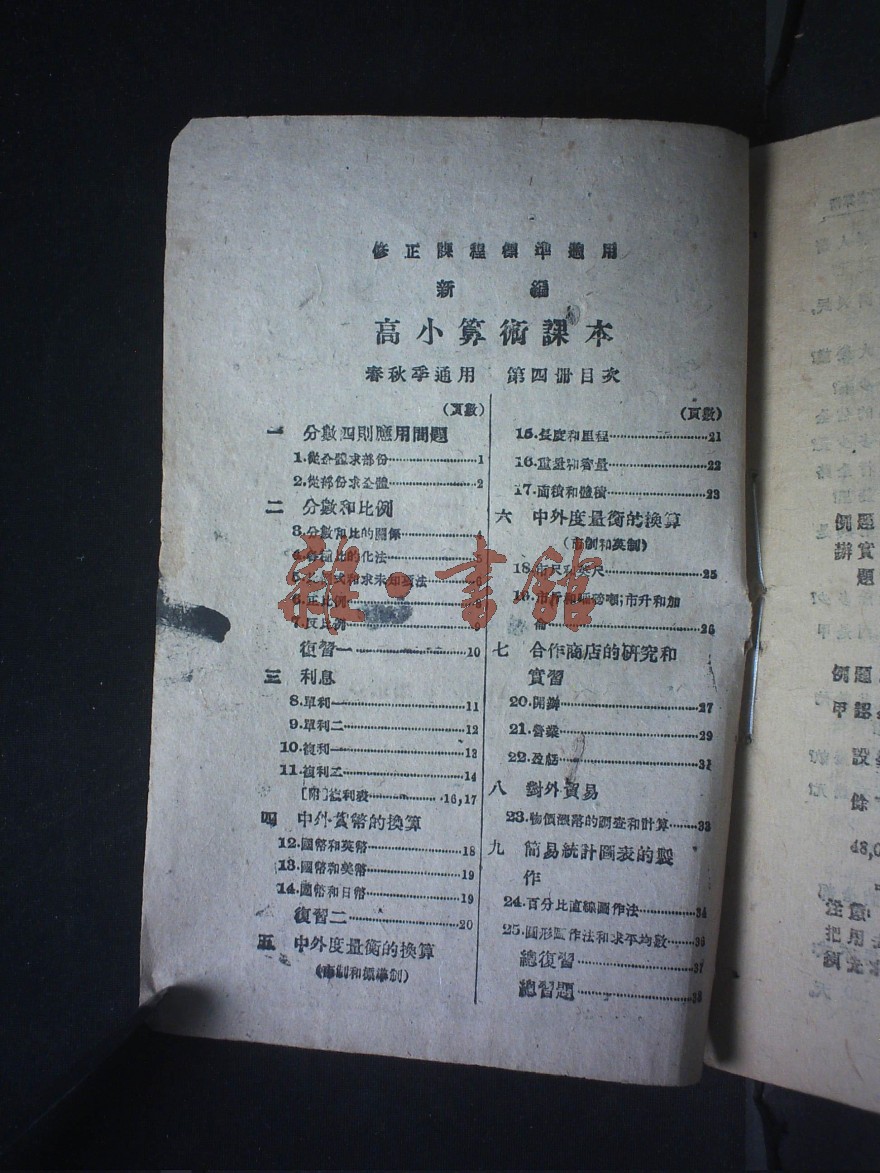 修正課程標準適用
新編
高小算術課本
春秋季通用 第四册目次
(頁數)
一 分數四則應用問題
1.從全體求部份……1
2.從部份求全體……2
二 分數和比例
3.分數和比的關係……
4.各種比的化法……5
6.正比例……8
7.反比例……9
復習一……10
三 利息
8.單利一……11
9.單利二……12
10.複利一……13
11.複利二……14
[附]複利表……16,17
四 中外貨幣的換算
12.國幣和英幣……18
13.國幣和美幣……19
14.國幣和日幣……19
復習二……20
五 中外度量衡的換算
(市制和標準制)
(頁數)
15.長度和里程……21
16.重量和容量……22
17.面積和體積……23
六 中外度量衡的換算
(市制和英制)
18.市尺和英尺……25
市升和加
侖……26
七 合作商店的研究和
實習
20.開辦……27
21.營業……29
22.盈虧……31
八 對外貿易
23.物價漲落的調查和計算……33
九 簡易統計圖表的製
作
24.百分比直線圖作法……34
25.圓形圖作法和求平均數……36
總復習……37
總習題……38
雜·書館
例題
辦實
題
例題
甲認
設
餘
48,0
注意
把用